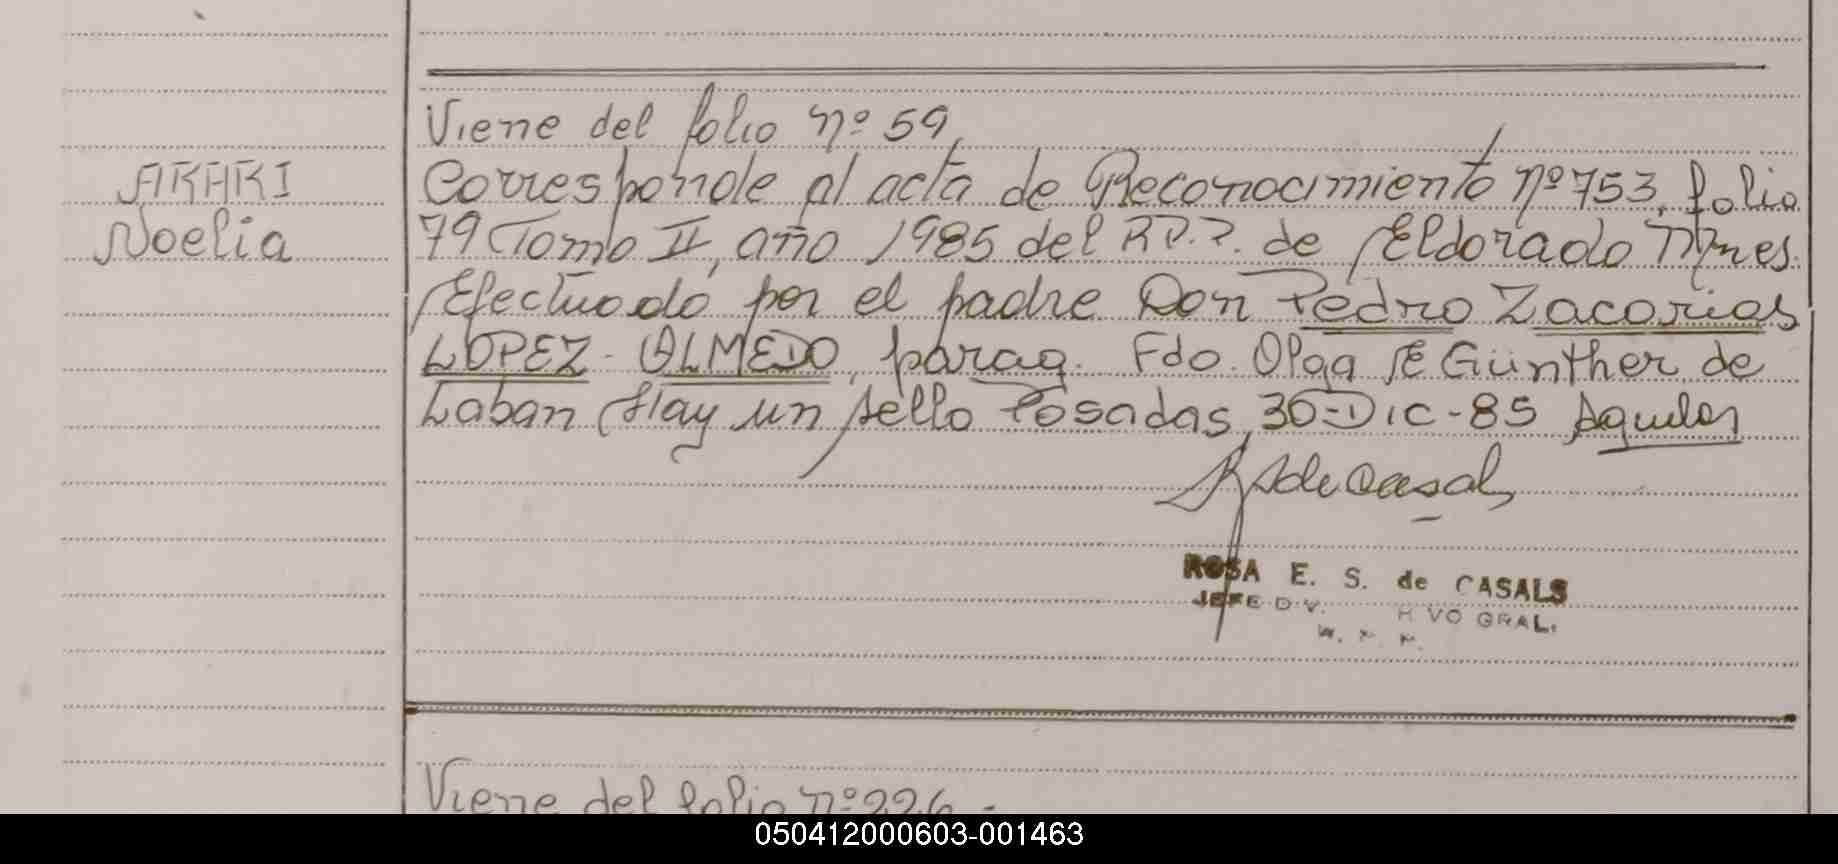 Viene del folio nº 59,
ARAKI
Noelia
Corresponde al acta de Reconocimiento nº 753, folio
79 Tomo II, año 1985 del R.P.P. de Eldorado Mnes.
Efectuado por el padre Don Pedro Zacarias
LOPEZ - OLMEDO, parag. Fdo. Olga E Günther de
Laban Hay un sello Posadas, 30-Dic-85
ROSA E. S. de CASALS
JEFE DIV. H VO GRAL.
Viene del folio nº 226 -
050412000603-001463